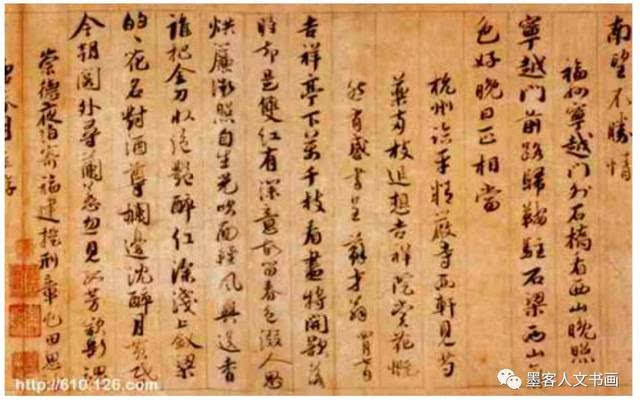 南望不勝情
福州寧越門外石橋看西山晚照
寧越門前路歸鞍駐石梁西山
色好晚日正相當
杭州臨平精嚴寺西軒見芍
藥兩枝追想吉祥院賞花慨
然有感書呈蘇才翁
吉祥亭下萬千枝看盡將開欲落
時却是雙紅有深意故留春色綴人思
烘簾微照自生光吹面輕風與送香
誰把金刀收絕艷醉紅深淺上釵梁
的的花名對酒尊欄邊沈醉月黃昏
今朝關外尋蘭若忽見孤芳欲斷魂
崇德夜泊寄福建提刑章屯田思
http://610.126.com/
墨客人文书画